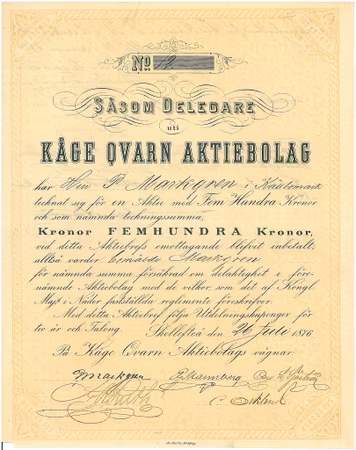 No 12
SÅSOM DELEGARE
uti
KÅGE QVARN AKTIEBOLAG
har Herr P. Markgren i Kåsbomark
tecknat sig för en Aktie med Fem Hundra Kronor
och som nämnda teckningssumma,
Kronor FEMHUNDRA Kronor,
vid detta Aktiebrefs emottagande blifvit inbetalt,
alltså varder bemälde Markgren
för nämnda summa försäkrad om delaktighet i före-
nämnde Aktiebolag med de vilkor, som det af Kongl
Maj:t i Nåder fastställda reglemente föreskrifver.
Med detta Aktiebref följa Utdelningskuponger för
tio år och Talong.
Skellefteå den 26 Juli 1876
På Kåge Qvarn Aktiebolags vägnar.
Markgren